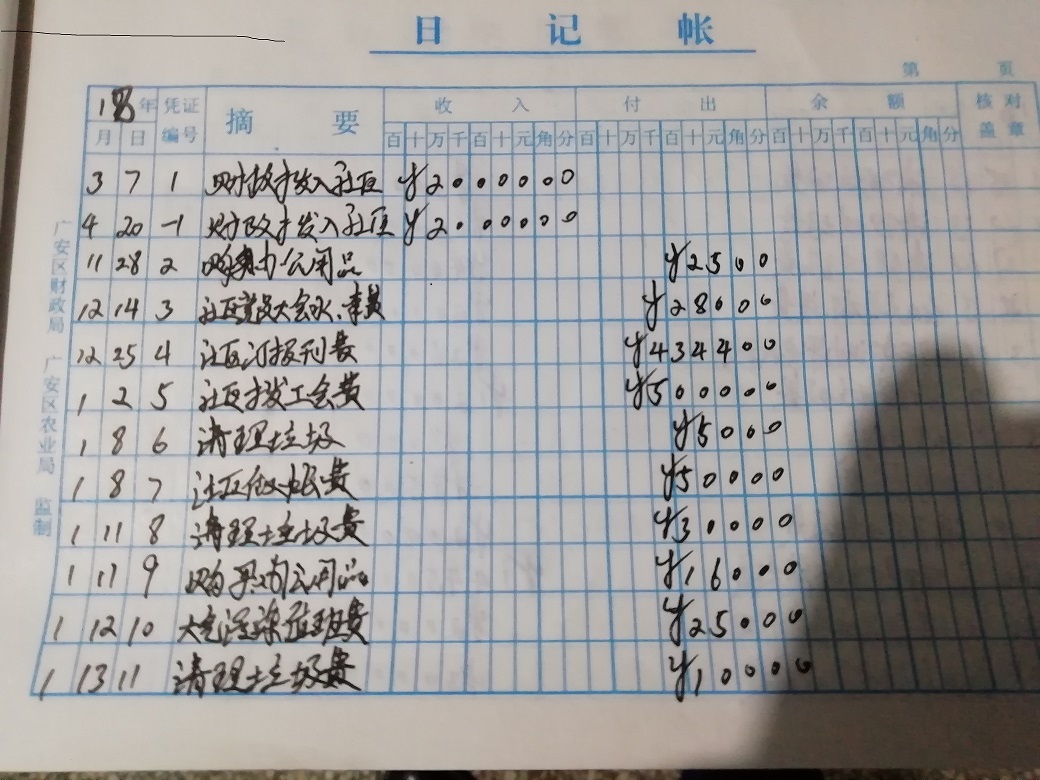 日 记 帐
第 页
18年 凭证 摘 要 收 入 付 出 余 额 核 对
月 日 编号 百十万千百十元角分 百十万千百十元角分 百十万千百十元角分 盖 章
3 7 1 财政拨入社区 ¥2000000
4 20 -1 财政拨入社区 ¥2000000
11 28 2 购买办公用品 ¥2500
12 14 3 社区党员大会水、 ¥28000
12 25 4 社区订报刊费 ¥434400
1 2 5 社区拨工会费 ¥500000
1 8 6 清理垃圾 ¥5000
1 8 7 社区做帐费 ¥50000
1 11 8 清理垃圾费 ¥30000
1 11 9 购买办公用品 ¥16000
1 12 10 大气污染值班费 ¥25000
1 13 11 清理垃圾费 ¥10000
广安区财政局 广安区农业局 监制